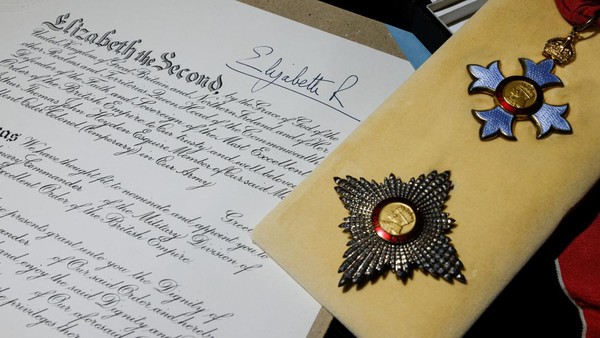 Elizabeth the Second,
Elizabeth R
by the Grace of God of the
United Kingdom of Great Britain and Northern Ireland and of Her
other Realms and Territories Queen Head of the Commonwealth
Defender of the Faith and Sovereign of the Most Excellent
Order of the British Empire to Our trusty and well beloved
Arthur Francis John Harden Esquire Member of Our said Most
Colonel (temporary) in Our Army
as We have thought fit to nominate and appoint you to
Commander of the Military Division of
Excellent Order of the British Empire
presents grant unto you the Dignity of
Commander of Our said Order and hereby
and enjoy the said Dignity and
of Our aforesaid
privileges